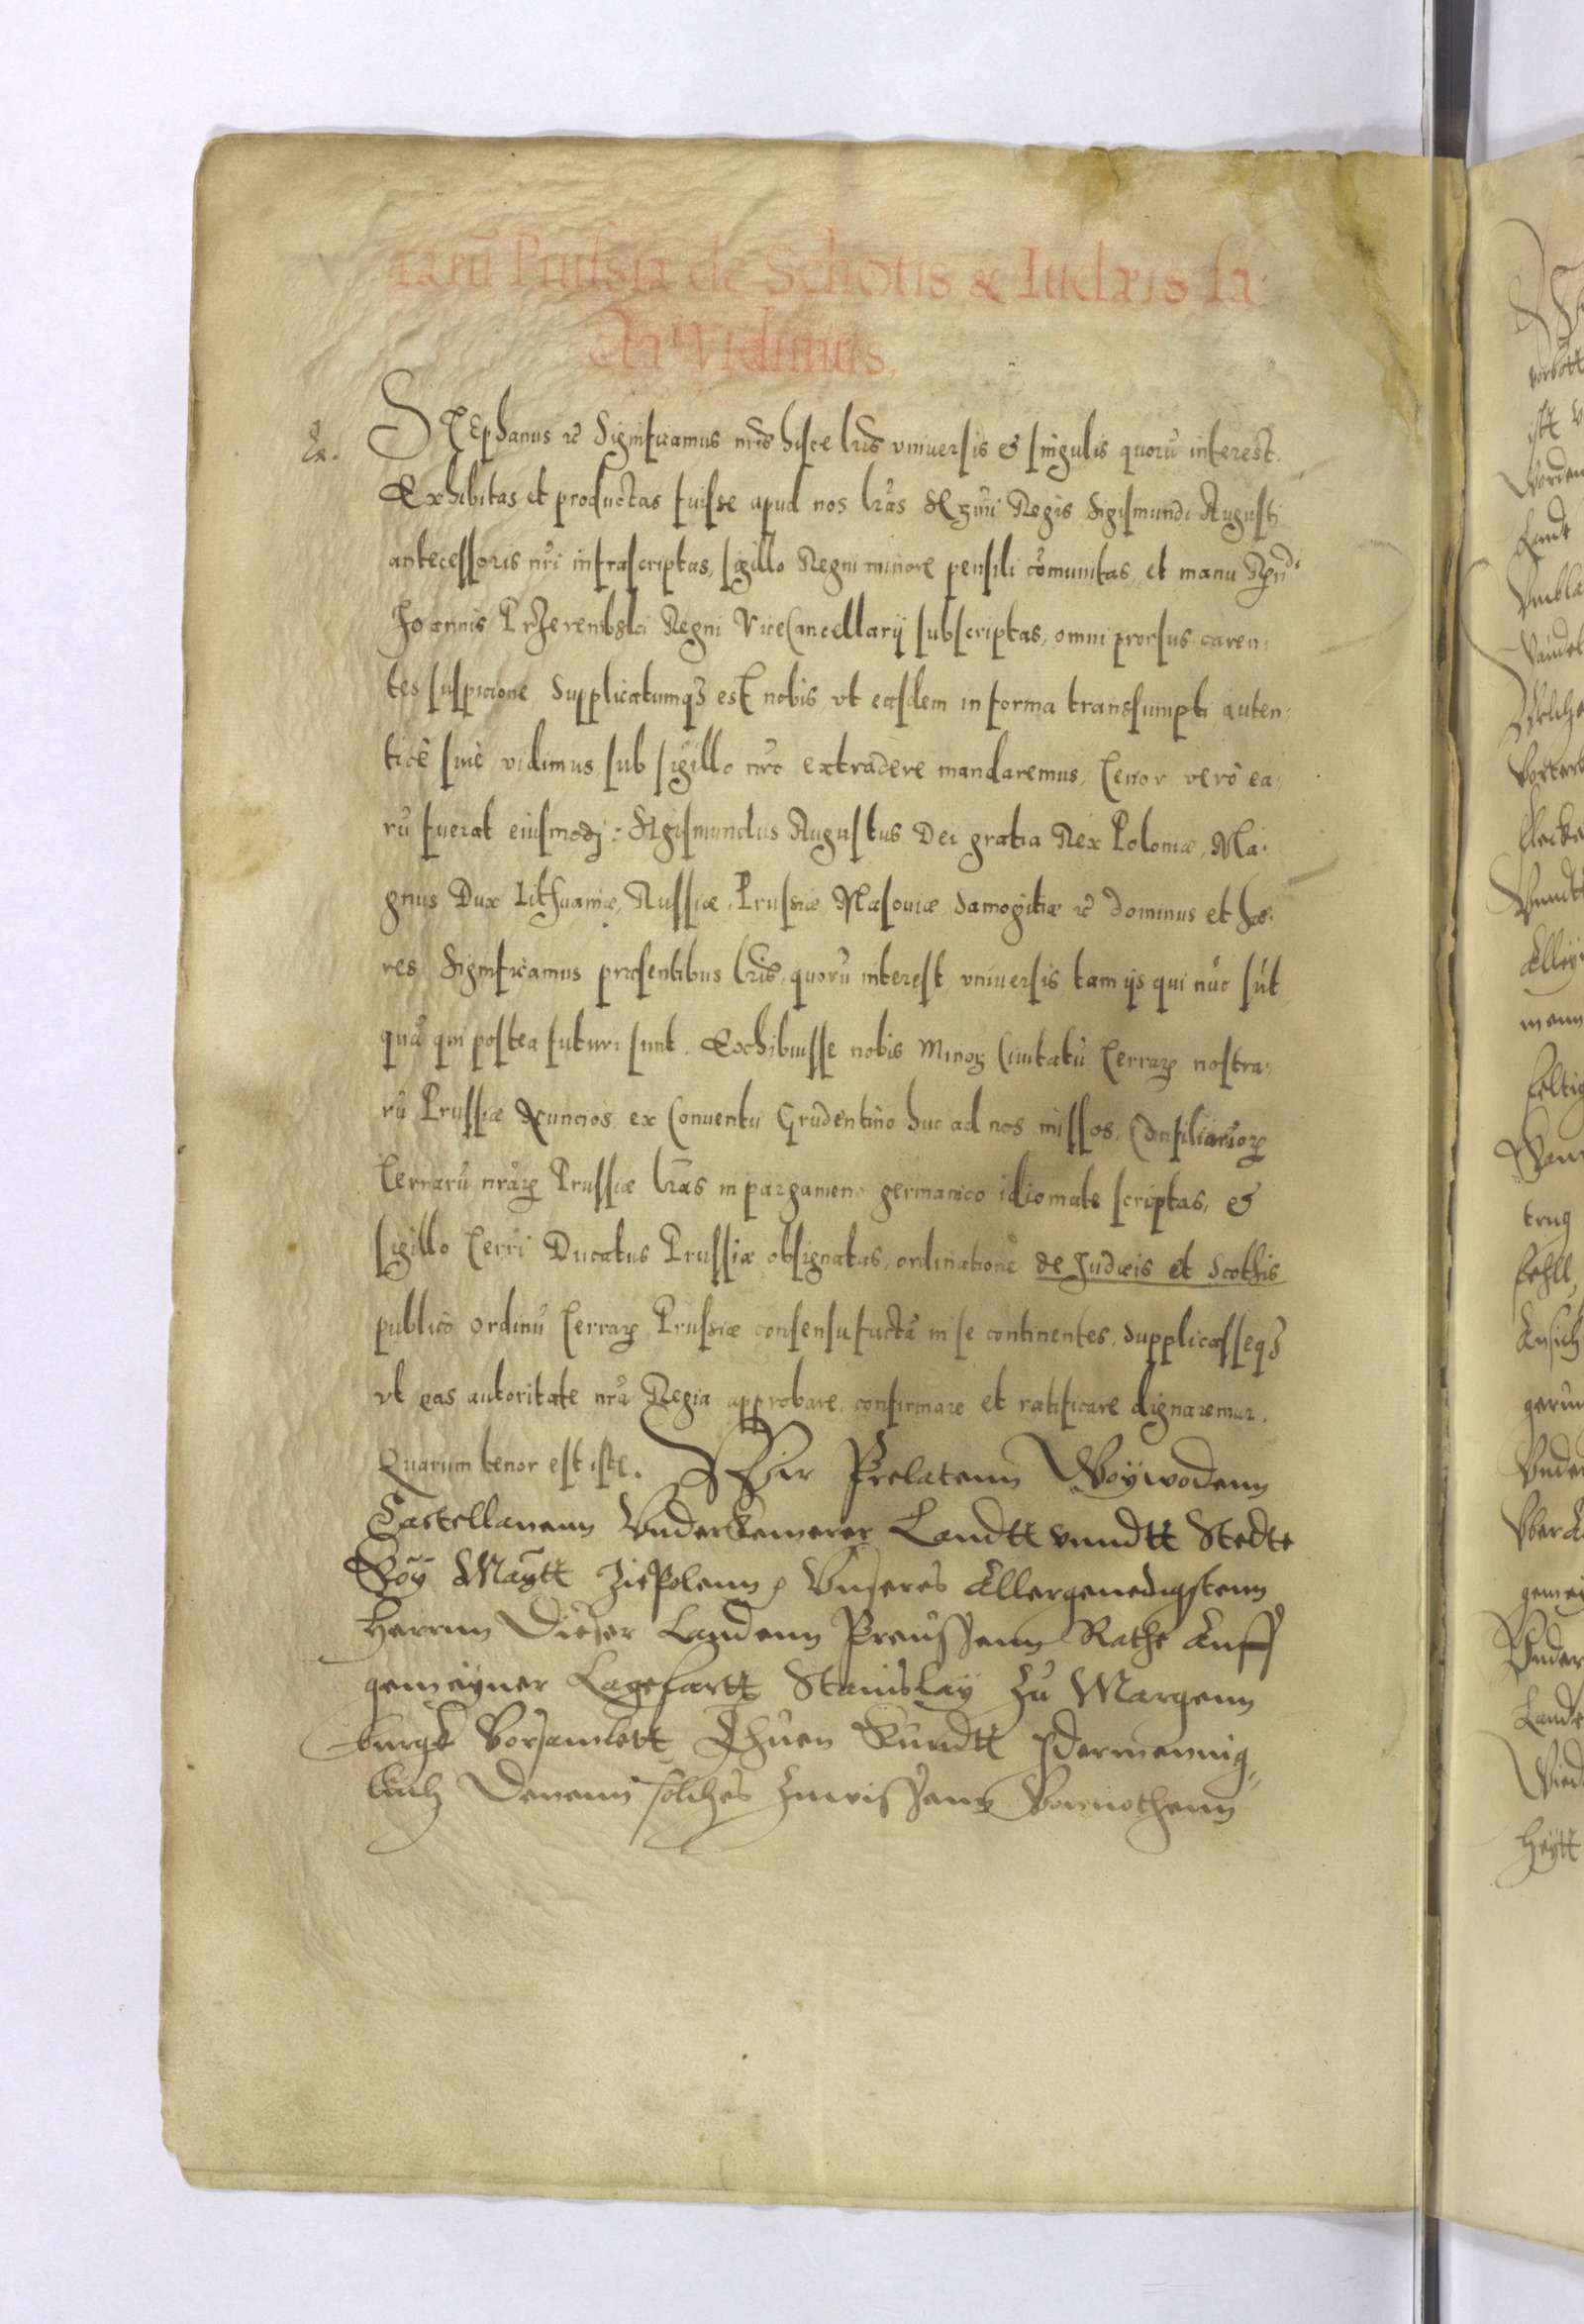 rarũ Prussia de Schotis & Iudæis fa
ctæ Vidimus.
Stephanus ꝛc Significamus nr̃is hisce lr̃is vniuersis & singulis quorũ interest.
Exhibitas et productas fuisse apud nos lr̃as Sereñi Regis Sigismundi Augusti
antecessoris nr̃i infrascriptas, sigillo Regni minore pensili cõmunitas, et manu Rñdi
Joannis Przerembski Regni ViceCancellarij subscriptas, omni prorsus caren
tes suspicione Supplicatumqꝫ est nobis vt easdem in forma transsumpti auten
ticè siuè vidimus sub sigillo nr̃o extradere mandaremus, Tenor verò ea
rũ fuerat eiusmodj: Sigismundus Augustus Dei gratia Rex Poloniæ, Ma
gnus Dux Lithuaniæ, Russiæ, Prussiæ Masouiæ Samogitiæ ꝛc dominus et hæ
res Significamus præsentibus lr̃is, quorũ interest vniuersis tam ijs qui nũc sũt
quã qui postea futuri sunt. Exhibuisse nobis Minoꝝ Ciuitatũ Terraꝝ nostra
rũ Prussiæ Nuncios ex Conuentu Grudentino huc ad nos missos, Consiliarioꝝ
Terrarũ nr̃aꝝ Prussiæ lr̃as in pargameno germanico idiomate scriptas, &
sigillo Terrj Ducatus Prussiæ obsignatas, ordinationẽ de Judæis et Scothis
publico ordinũ Terraꝝ Prussiæ consensu factã in se continentes, Supplicasseqꝫ
vt eas autoritate nr̃a Regia approbare, confirmare et ratificare dignaremur.
Quarum tenor est iste. Wir Prelatenn Woÿwodenn
Castellanenn Vnderkemerer Landtt vnndtt Stedte
Koÿ Maytt Zu Polenn Vnseres Allergenedigstenn
Herrnn Dieser Landenn Preussenn Rathe Auff
gemeÿner Tagefartt Stanislaÿ Zu Margenn
burgk Vorsamlett Thuen Kundtt Idermennig
lich Denenn solches Zuwissenn Vonnothenn